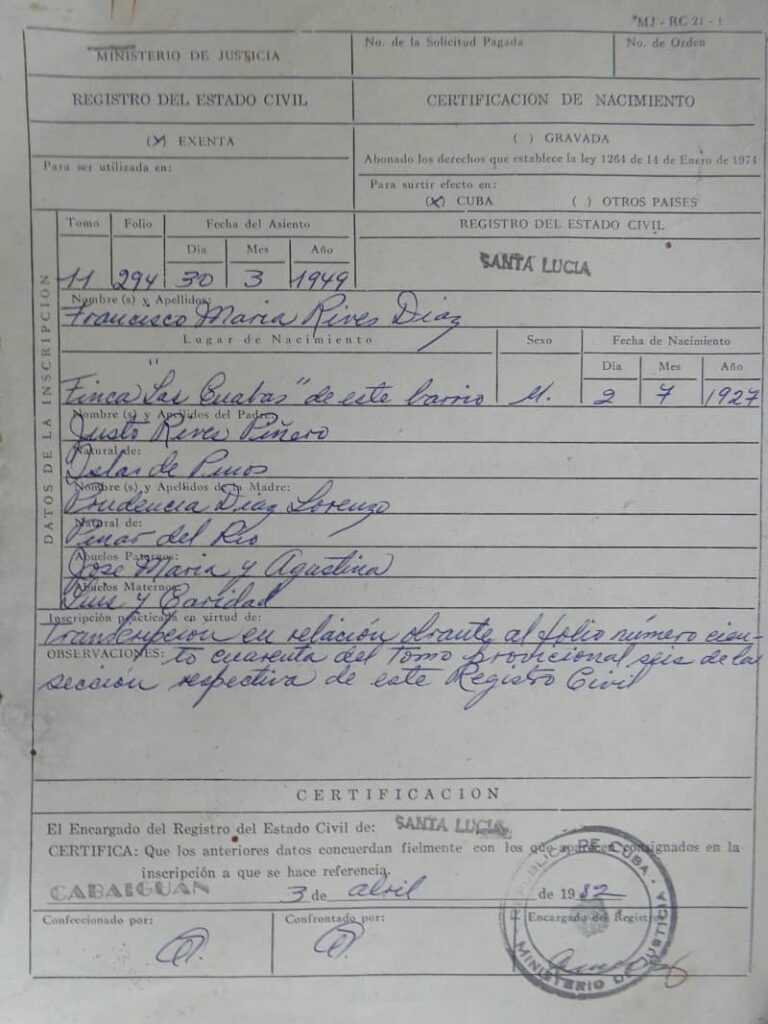 MJ - RC 21 - 1
MINISTERIO DE JUSTICIA
No. de la Solicitud Pagada
No. de Orden
REGISTRO DEL ESTADO CIVIL
CERTIFICACION DE NACIMIENTO
(X) EXENTA
( ) GRAVADA
Para ser utilizada en:
Abonado los derechos que establece la ley 1264 de 14 de Enero de 1974
Para surtir efecto en:
(X) CUBA ( ) OTROS PAISES
DATOS DE LA INSCRIPCION
Tomo Folio Fecha del Asiento
REGISTRO DEL ESTADO CIVIL
Día Mes Año
SANTA LUCIA
11 294 30 3 1949
Nombre (s) y Apellidos:
Francisco Maria Rives Diaz
Lugar de Nacimiento Sexo Fecha de Nacimiento
Día Mes Año
Finca "Las Cuabas" de este barrio M. 2 7 1927
Nombre (s) y Apellidos del Padre:
Justo Rives Piñero
Natural de:
Islas de Pinos
Nombre (s) y Apellidos de la Madre:
Prudencia Diaz Lorenzo
Natural de:
Pinar del Rio
Abuelos Paternos:
Jose Maria y Agustina
Abuelos Maternos:
Luis y Caridad
Inscripción practicada en virtud de:
Transcripcion en relación obrante al folio número cien-
OBSERVACIONES: to cuarenta del Tomo provicional seis de la
sección respectiva de este Registro Civil
CERTIFICACION
El Encargado del Registro del Estado Civil de: SANTA LUCIA
CERTIFICA: Que los anteriores datos concuerdan fielmente con los que aparecen consignados en la
inscripción a que se hace referencia.
CABAIGUAN 3 de abril de 1982
Confeccionado por:
Confrontado por:
Encargado del Registro
REPUBLICA DE CUBA - MINISTERIO DE JUSTICIA